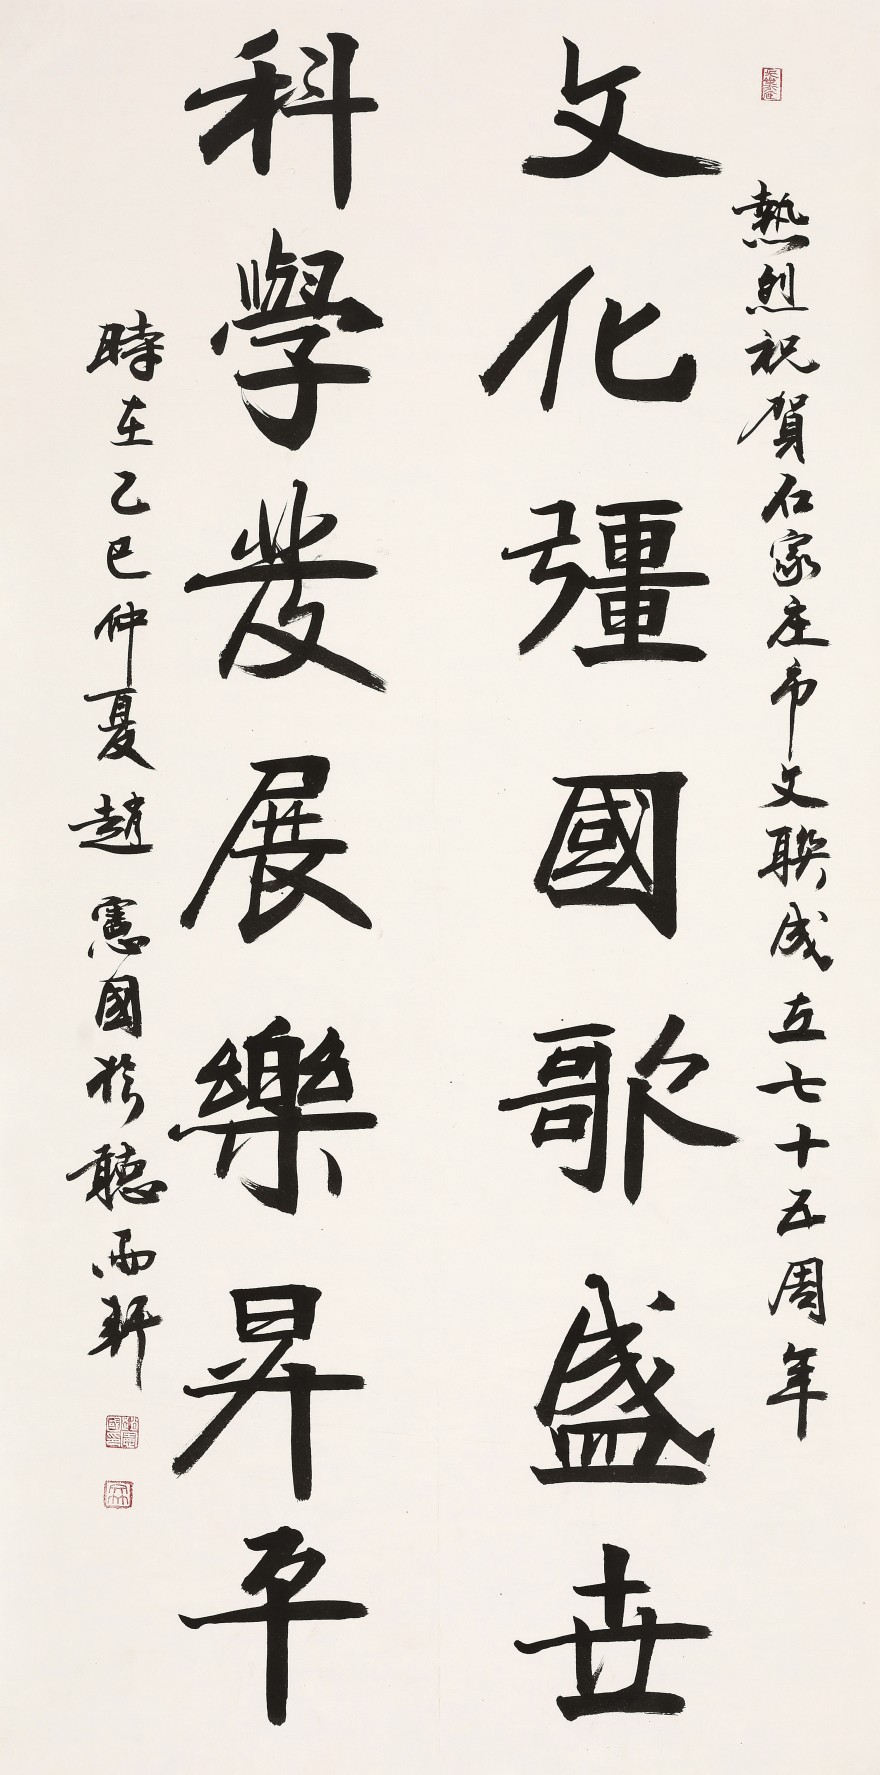 熱烈祝賀石家庄市文联成立七十五周年
文化彊國歌盛世
科學發展樂昇平
時在乙巳仲夏趙憲國於聽雨軒